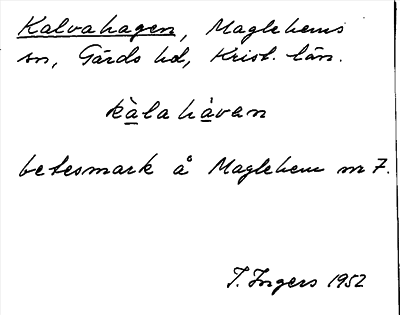 Kalvahagen, Maglehems
sn, Gärds hd, Krist. län.
kàlahàvan
betesmark å Maglehem nr 7.
I. Ingers 1952